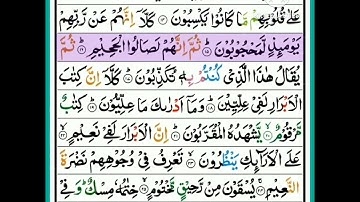 عَلٰى قُلُوْبِهِمْ مَّا كَانُوْا يَكْسِبُوْنَ ۝۱۴ كَلَّاۤ اِنَّهُمْ عَنْ رَّبِّهِمْ
يَوْمَئِذٍ لَّمَحْجُوْبُوْنَ ۝۱۵ ثُمَّ اِنَّهُمْ لَصَالُوا الْجَحِيْمِ ۝۱۶ ثُمَّ
يُقَالُ هٰذَا الَّذِيْ كُنْتُمْ بِهٖ تُكَذِّبُوْنَ ۝۱۷ كَلَّاۤ اِنَّ كِتٰبَ
الْاَبْرَارِ لَفِيْ عِلِّيِّيْنَ ۝۱۸ وَمَاۤ اَدْرٰىكَ مَا عِلِّيُّوْنَ ۝۱۹ كِتٰبٌ
مَّرْقُوْمٌ ۝۲۰ يَّشْهَدُهُ الْمُقَرَّبُوْنَ ۝۲۱ اِنَّ الْاَبْرَارَ لَفِيْ نَعِيْمٍ ۝۲۲
عَلَى الْاَرَآئِكِ يَنْظُرُوْنَ ۝۲۳ تَعْرِفُ فِيْ وُجُوْهِهِمْ نَضْرَةَ
النَّعِيْمِ ۝۲۴ يُسْقَوْنَ مِنْ رَّحِيْقٍ مَّخْتُوْمٍ ۝۲۵ خِتٰمُهٗ مِسْكٌ ؕ وَفِيْ